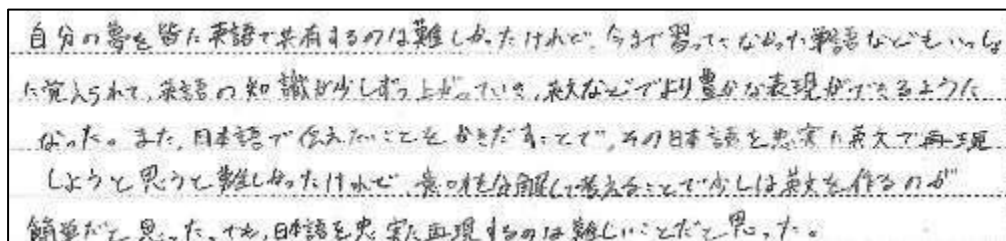 自分の夢を皆に英語で共有するのは難しかったけれど、今まで習っていなかった単語などもいっしょ
に覚えられて、英語の知識が少しずつ上がっていき、英文などでより豊かな表現ができるように
なった。また、日本語で伝えたいことをかきだすことで、その日本語を忠実に英文で再現
しようと思うと難しかったけれど、意味を分解して考えることで少しは英文を作るのが
簡単だと思った。でも、日本語を忠実に再現するのは難しいことだと思った。